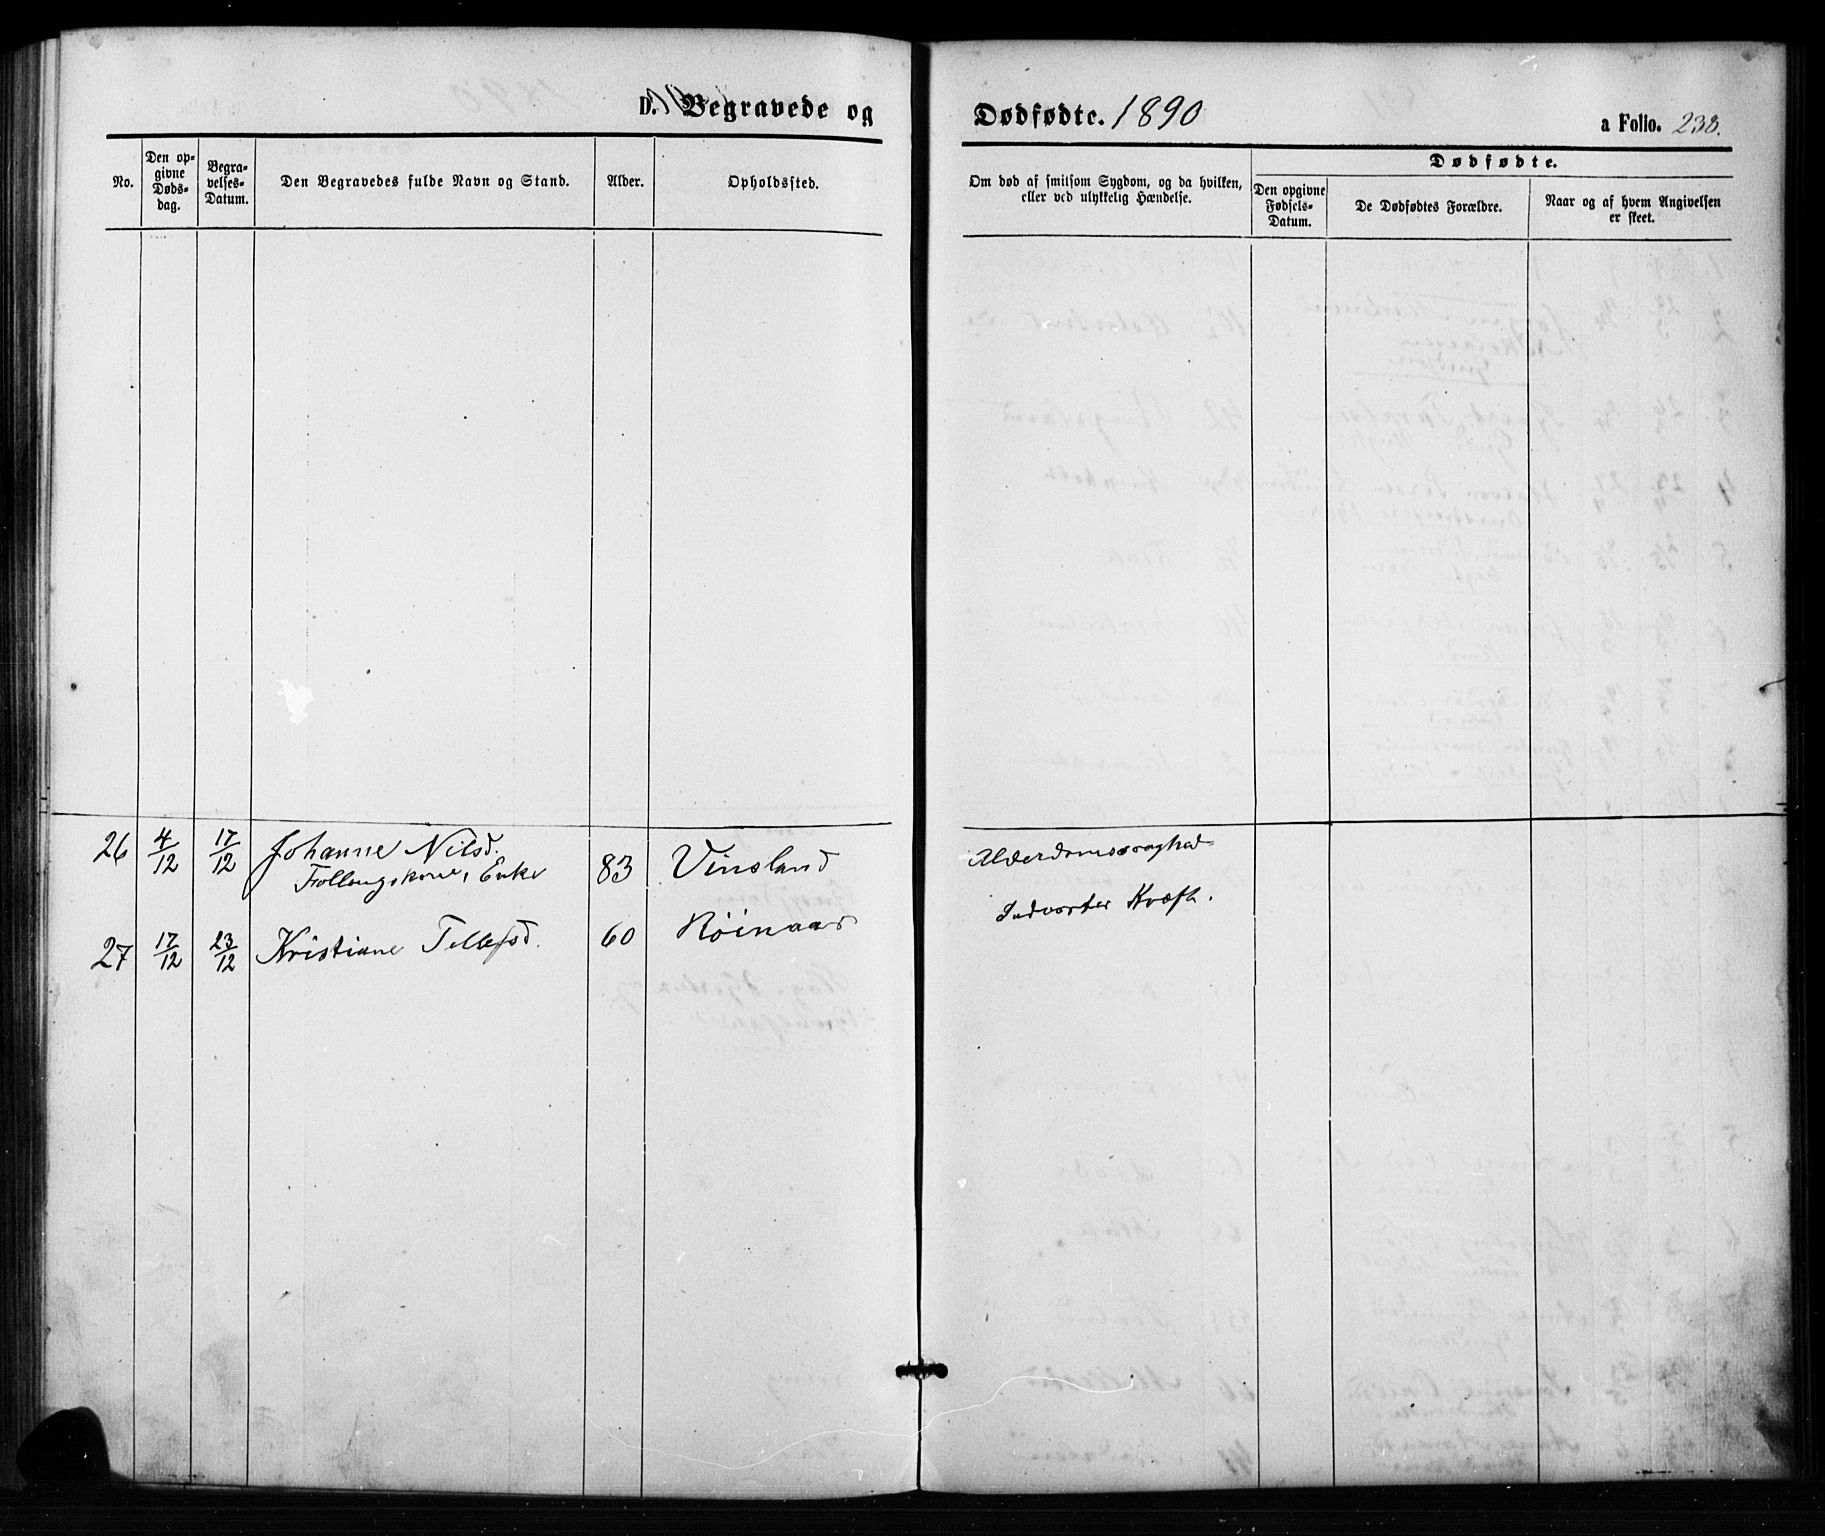 D. Begravede og
Dødfødte. 1890
a Folio. 238.
No.
Den op-
givne
Døds-
dag.
Begra-
velses-
Datum.
Den Begravedes fulde Navn og Stand.
Alder.
Opholdssted.
Om død af smitsom Sygdom, og da hvilken,
eller ved ulykkelig Hændelse.
Dødfødte.
Den opgivne
Fødsels-
Datum.
De Dødfødtes Forældre.
Naar og af hvem Angivelsen
er skeet.
26 4/12 17/12 Johanne Nilsd. 83 Vinsland Alderdomssvaghed
Enke
27 17/12 23/12 Kristiane Tellefsd. 60 Røinaas Indvortes Kræft.